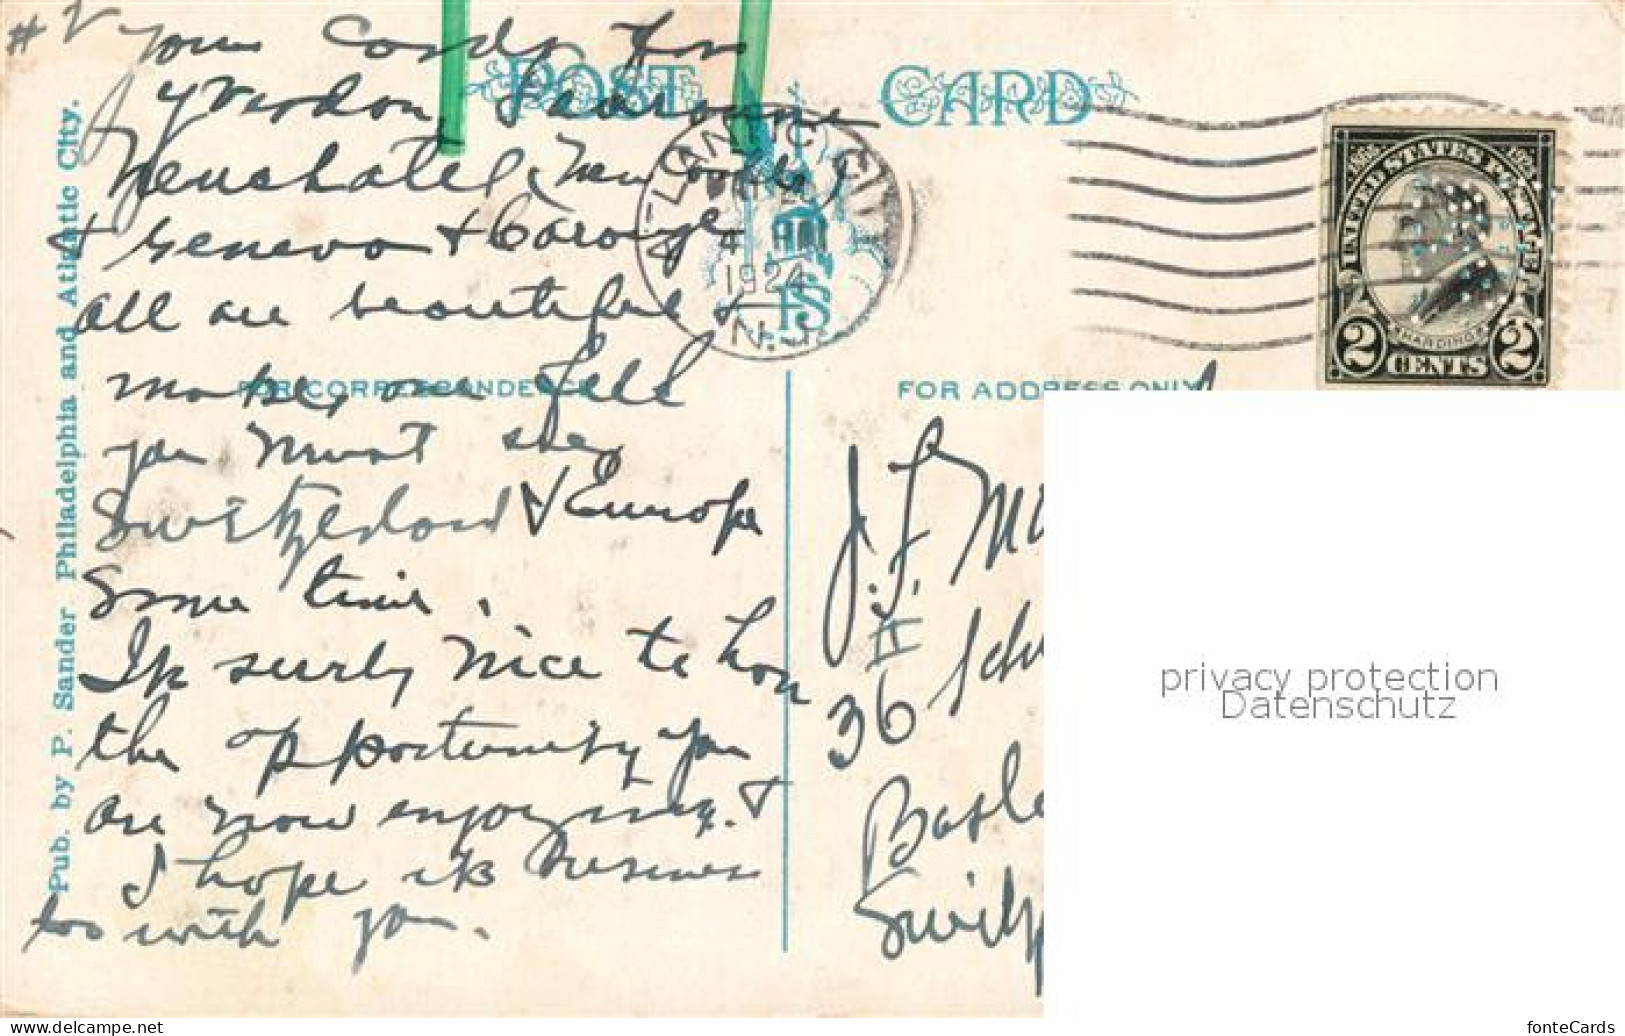 #2 your cards from
Yverdon Lausanne
Neuchatel (two cards)
& Geneva & Carouge
all are beautiful &
makes one feel
you must see
Switzerland & Europe
some time.
Its surely nice to hav
the opportunity you
are now enjoying. &
I hope its business
too with you.
Pub. by P. Sander Philadelphia and Atlantic City.
POST CARD
ATLANTIC CITY
4
1924
N.J.
FOR CORRESPONDENCE
FOR ADDRESS ONLY
UNITED STATES POSTAGE
1865 1923
HARDING
2 CENTS 2
J. F.
II
36
Basle
privacy protection
Datenschutz
fonteCards
www.delcampe.net